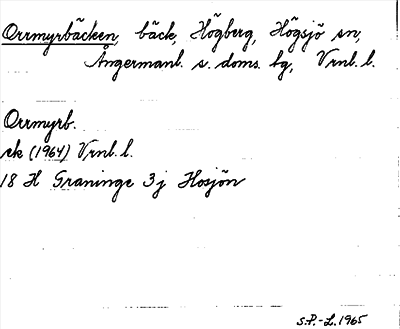 Orrmyrbäcken, bäck, Högberg, Högsjö sn,
Ångermanl. s. doms. bg, Vrnl. l.
Orrmyrb.
ek (1964) Vrnl. l.
18 H Graninge 3j Hosjön
S.P.-L. 1965